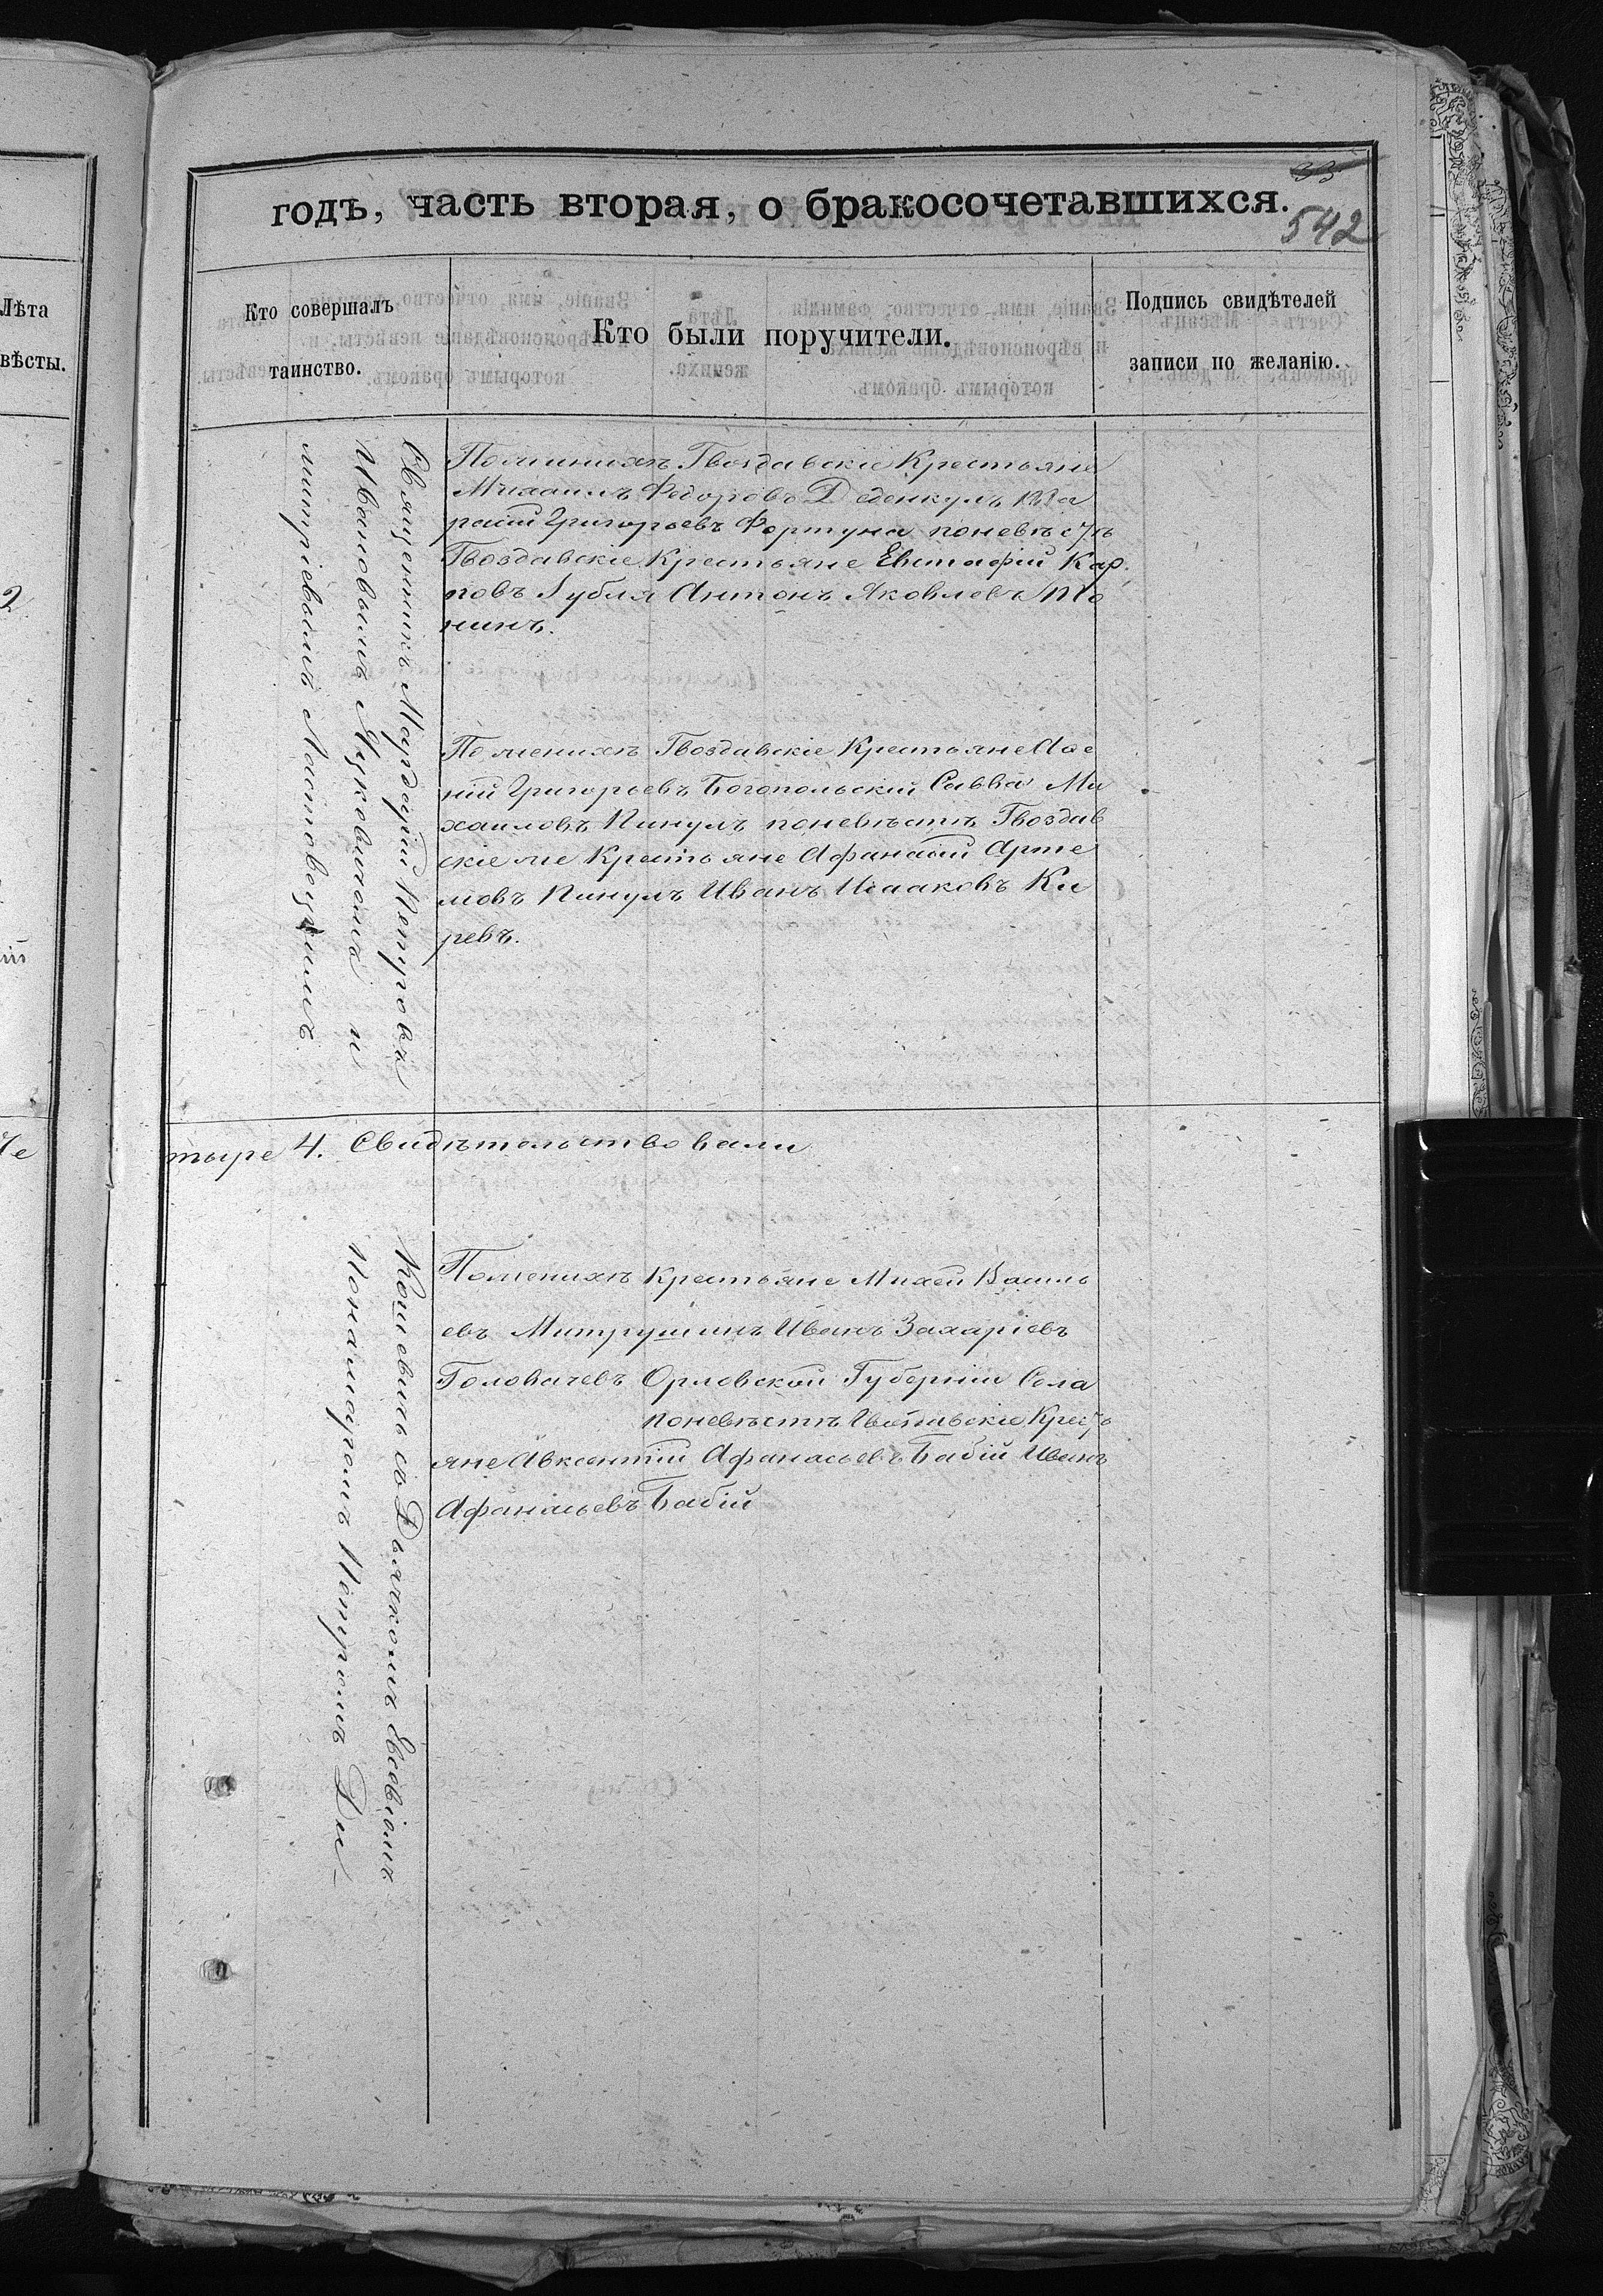 33
годъ, часть вторая, о бракосочетавшихся.
542
Лѣта
вѣсты.
Кто совершалъ
таинство.
Кто были поручители.
Подпись свидѣтелей
записи по желанію.
Священникъ Мардарій Петровъ
Ивановымъ Яцковичома и
митріевымъ Ластовецкимъ
По женихѣ Гвоздавскіе Крестьяне
Михаилъ Федоровъ Деденкулъ
Григорьевъ Фортуна по невѣстѣ
Гвоздавскіе Крестьяне Евстафій Кар
повъ Губля Антонъ Яковлевъ
нинъ.
По женихѣ Гвоздавскіе Крестьяне
ній Григорьевъ Богопольскій Савва Ми
хаиловъ Пинулъ по невѣстѣ Гвоздав
скіе же Крестьяне Афанасій Арте
мовъ Пинулъ Иванъ Исааковъ Ки
ревъ.
тыре 4. Свидѣтельствовали
Кошевимъ съ Дьячкомъ Евсевіомъ
Понамаромъ Потромъ Ди
По женихѣ Крестьяне Михей Василь
евъ Митрушинъ Иванъ Захаріевъ
Головачевъ Орловской Губерніи Села
по невѣстѣ Крест
яне Авксентій Афанасьевъ Бабій Иванъ
Афанасьевъ Бабій
2
ій